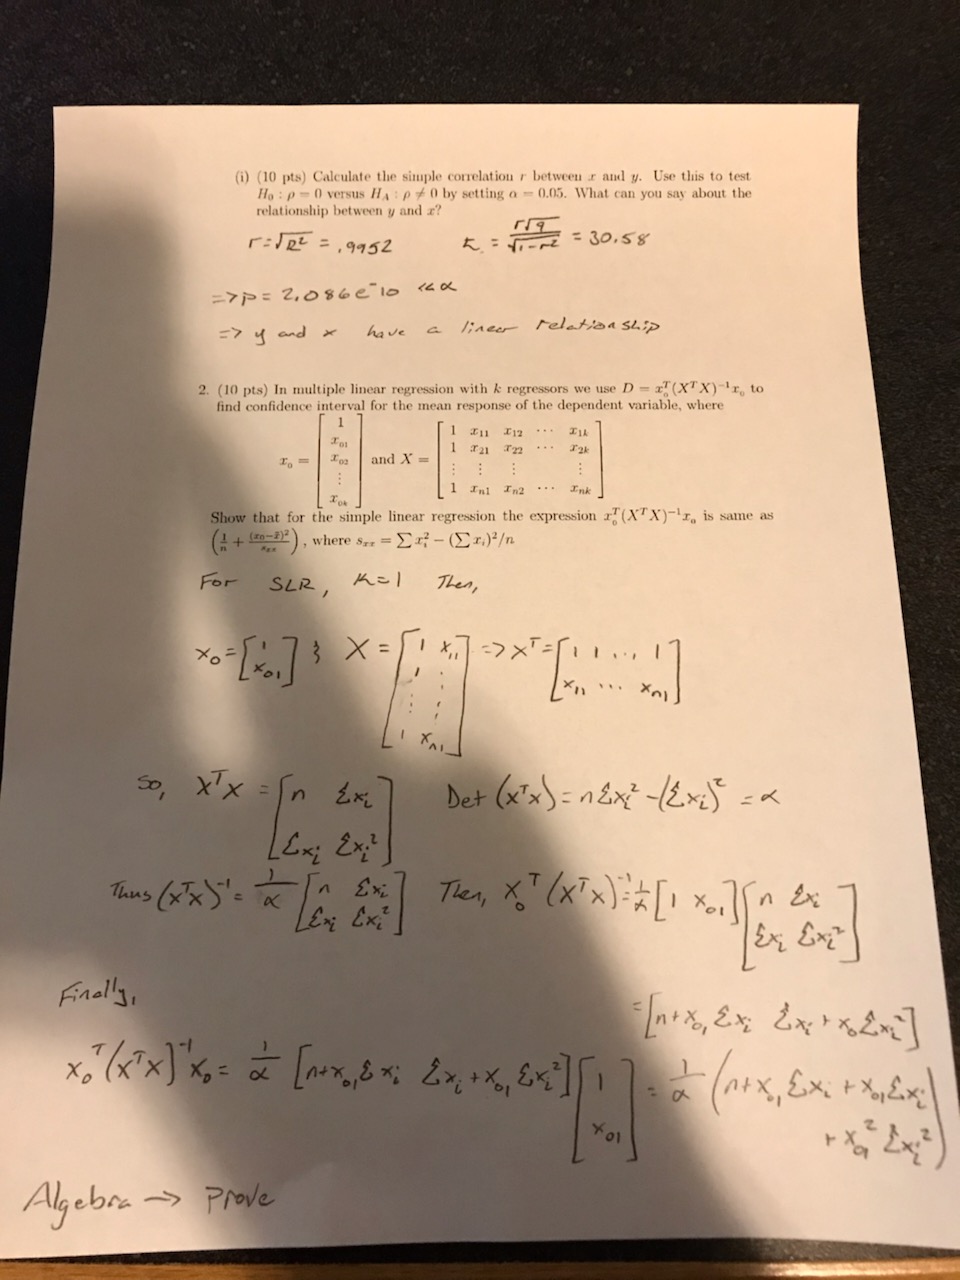 (i) (10 pts) Calculate the simple correlation r between x and y. Use this to test
H₀ : ρ = 0 versus H_A : ρ ≠ 0 by setting α = 0.05. What can you say about the
relationship between y and x?
r=√R² = .9952 t₀ = r√9 / √1-r² = 30.58
=> p = 2.086e^-10 << α
=> y and x have a linear relationship
2. (10 pts) In multiple linear regression with k regressors we use D = x₀ᵀ(XᵀX)⁻¹x₀ to
find confidence interval for the mean response of the dependent variable, where
x₀ = [1 x₀₁ x₀₂ ⋮ x₀ₖ] and X = [1 x₁₁ x₁₂ ⋯ x₁ₖ
1 x₂₁ x₂₂ ⋯ x₂ₖ
⋮ ⋮ ⋮ ⋮
1 xₙ₁ xₙ₂ ⋯ xₙₖ]
Show that for the simple linear regression the expression x₀ᵀ(XᵀX)⁻¹x₀ is same as
(1/n + (x₀-x̄)²/sₓₓ), where sₓₓ = ∑xᵢ² − (∑xᵢ)²/n
For SLR, k=1 Then,
x₀ = [1 x₀₁] & X = [1 x₁₁ 1 ⋮ ⋮ ⋮ 1 xₙ₁] => Xᵀ = [1 1 ... 1
x₁₁ ... xₙ₁]
So, XᵀX = [n Σxᵢ
Σxᵢ Σxᵢ²] Det(XᵀX) = nΣxᵢ² - (Σxᵢ)² = α
Thus (XᵀX)⁻¹ = 1/α [n Σxᵢ
Σxᵢ Σxᵢ²] Then, X₀ᵀ(XᵀX)⁻¹ = 1/α [1 x₀₁] [n Σxᵢ
Σxᵢ Σxᵢ²]
= [n+x₀₁Σxᵢ Σxᵢ+x₀Σxᵢ²]
Finally,
x₀ᵀ(XᵀX)⁻¹x₀ = 1/α [n+x₀₁Σxᵢ Σxᵢ+x₀₁Σxᵢ²] [1
x₀₁] = 1/α (n+x₀₁Σxᵢ + x₀₁Σxᵢ
+ x₀₁²Σxᵢ²)
Algebra → Prove